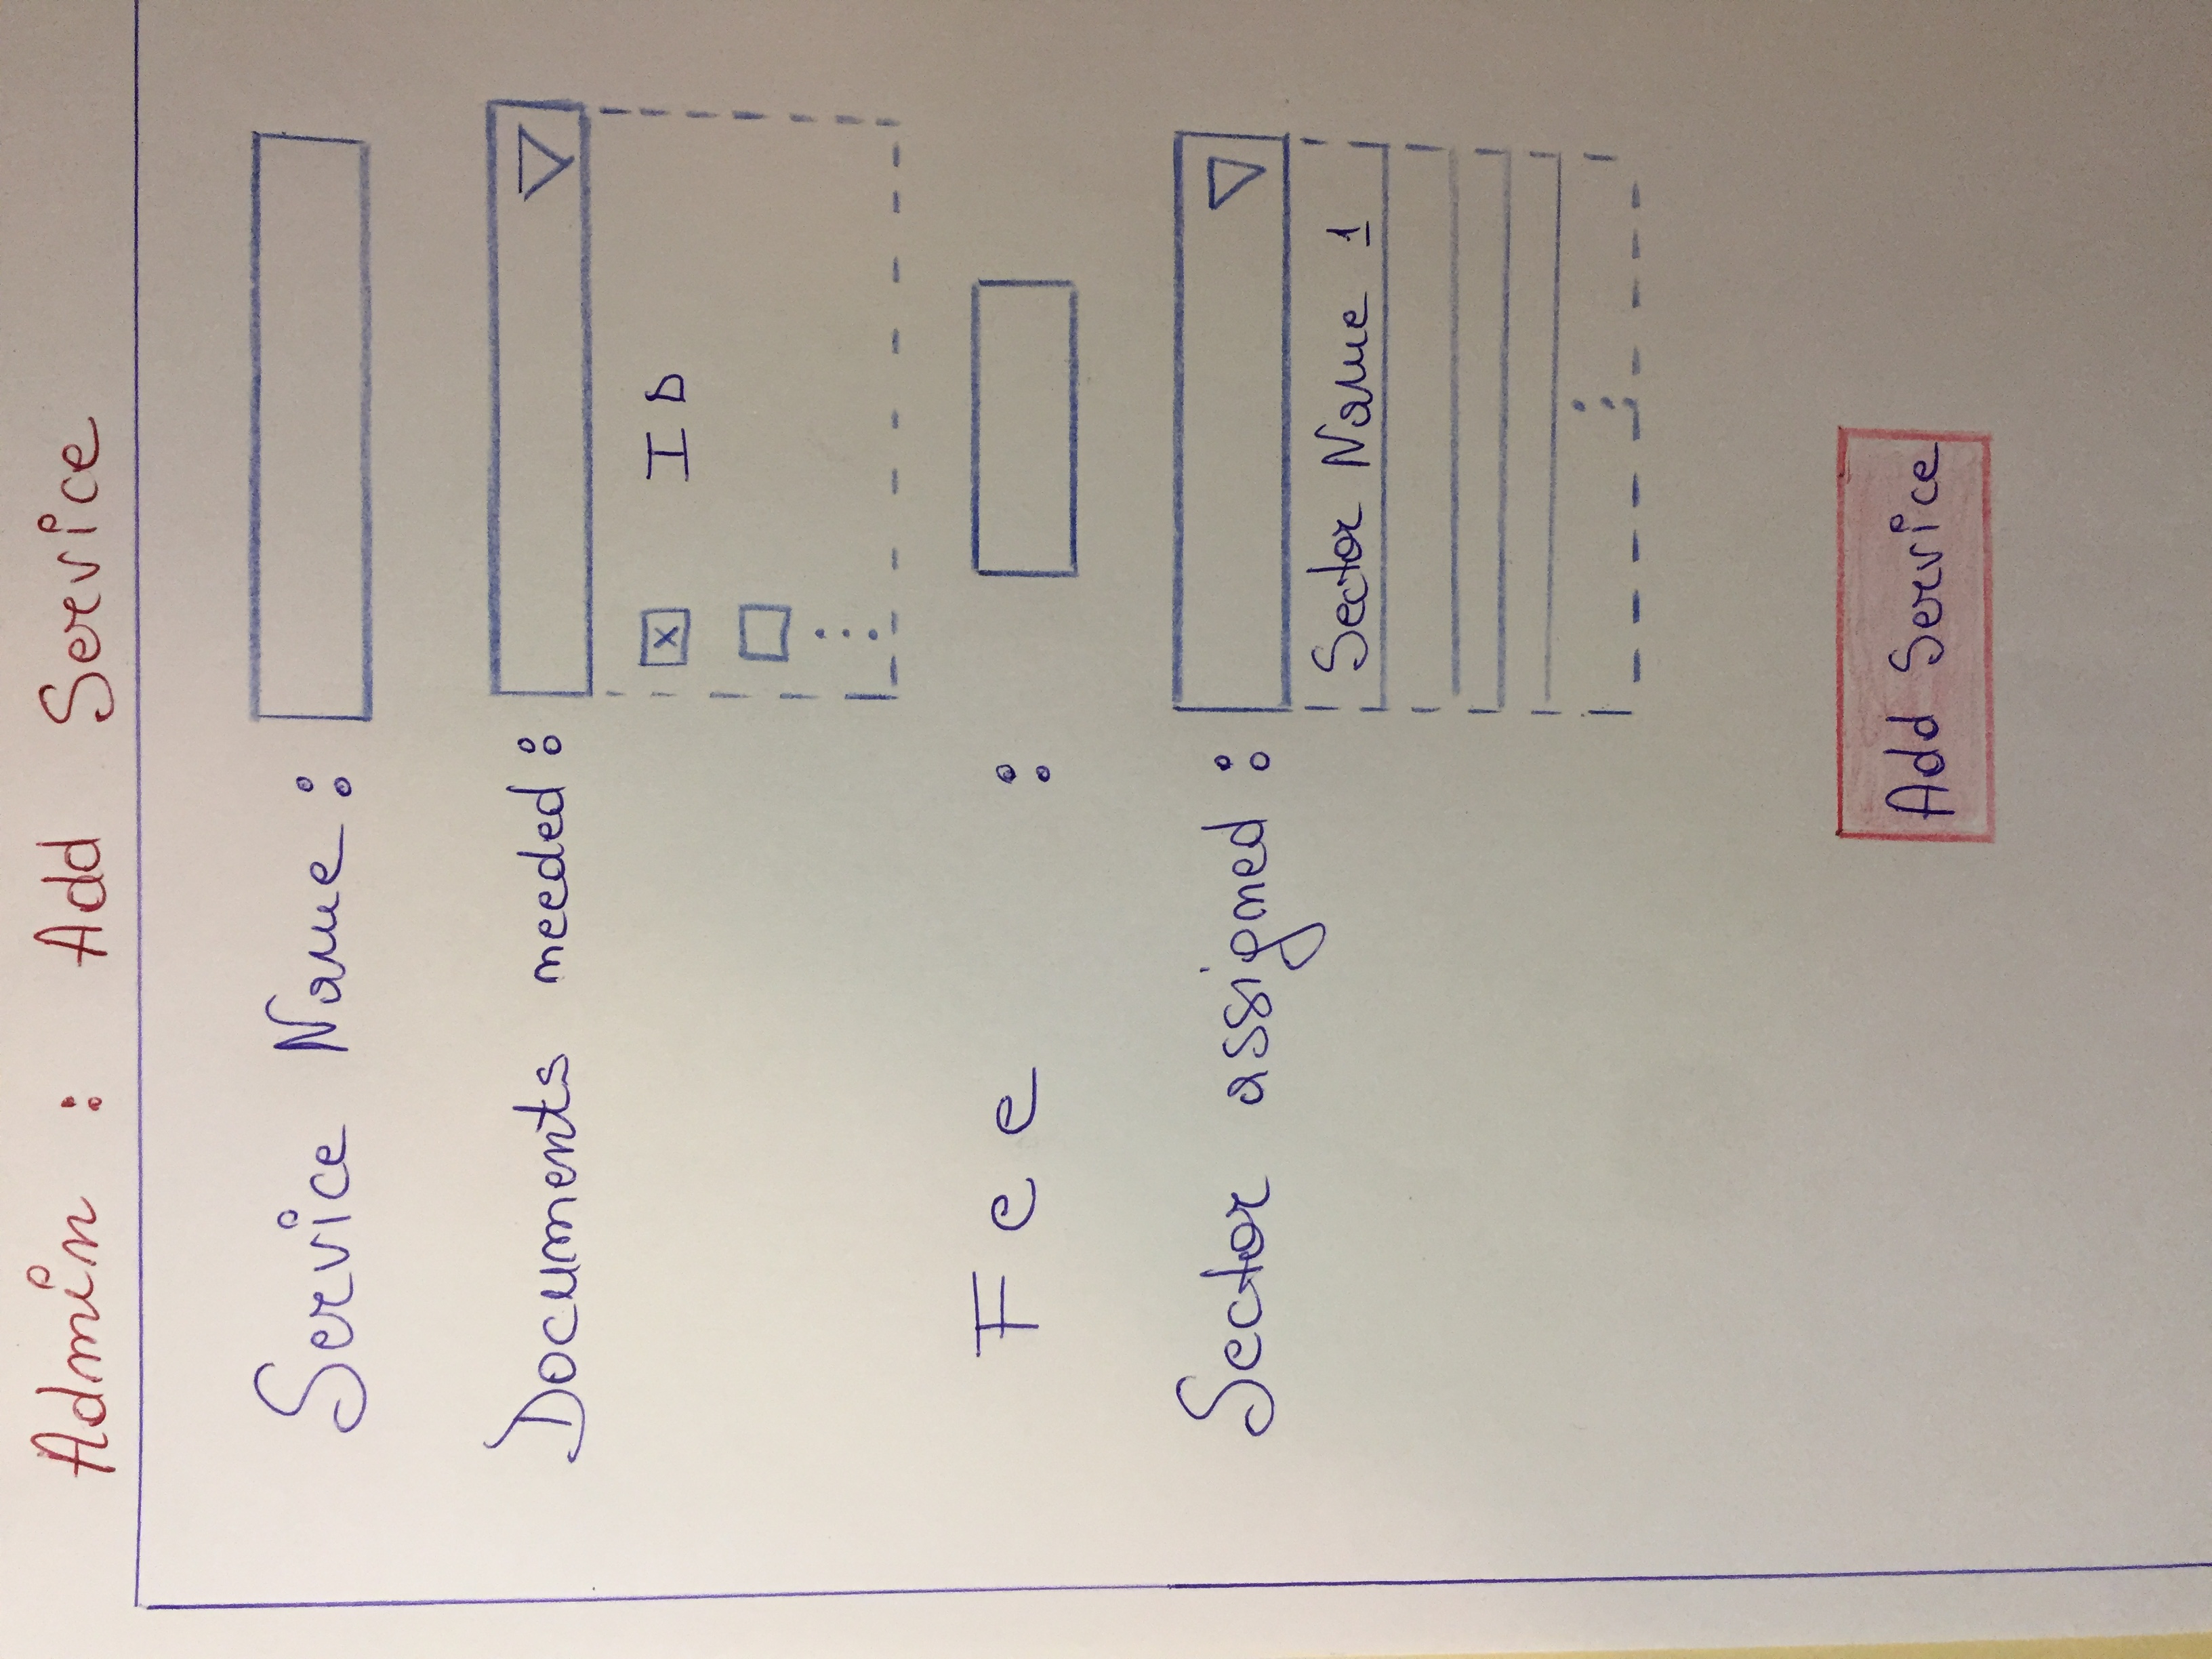 Admin : Add Service
Service Name :
Documents needed :
ID
Fee :
Sector assigned :
Sector Name 1
Add Service